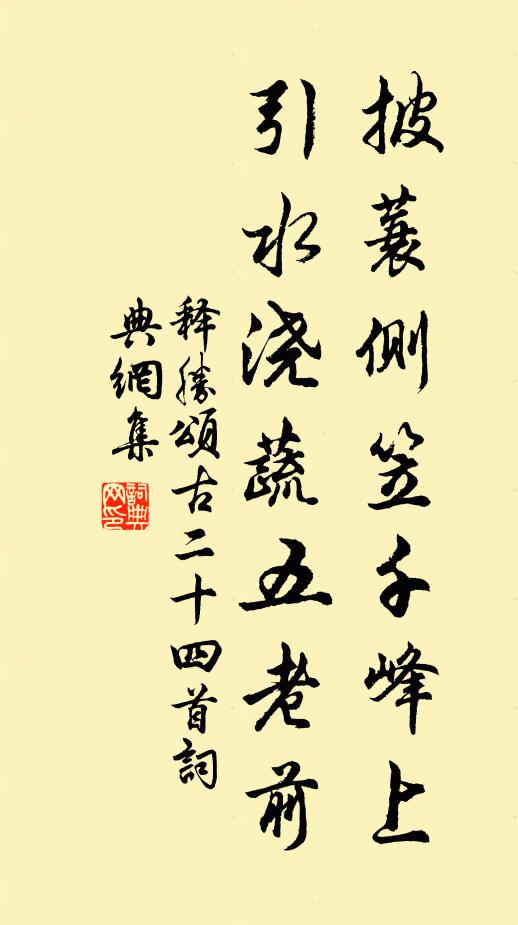 披蓑側笠千峰上
引水浇蔬五老前
释勝頌古二十四首詞
典網集
詞典
网印